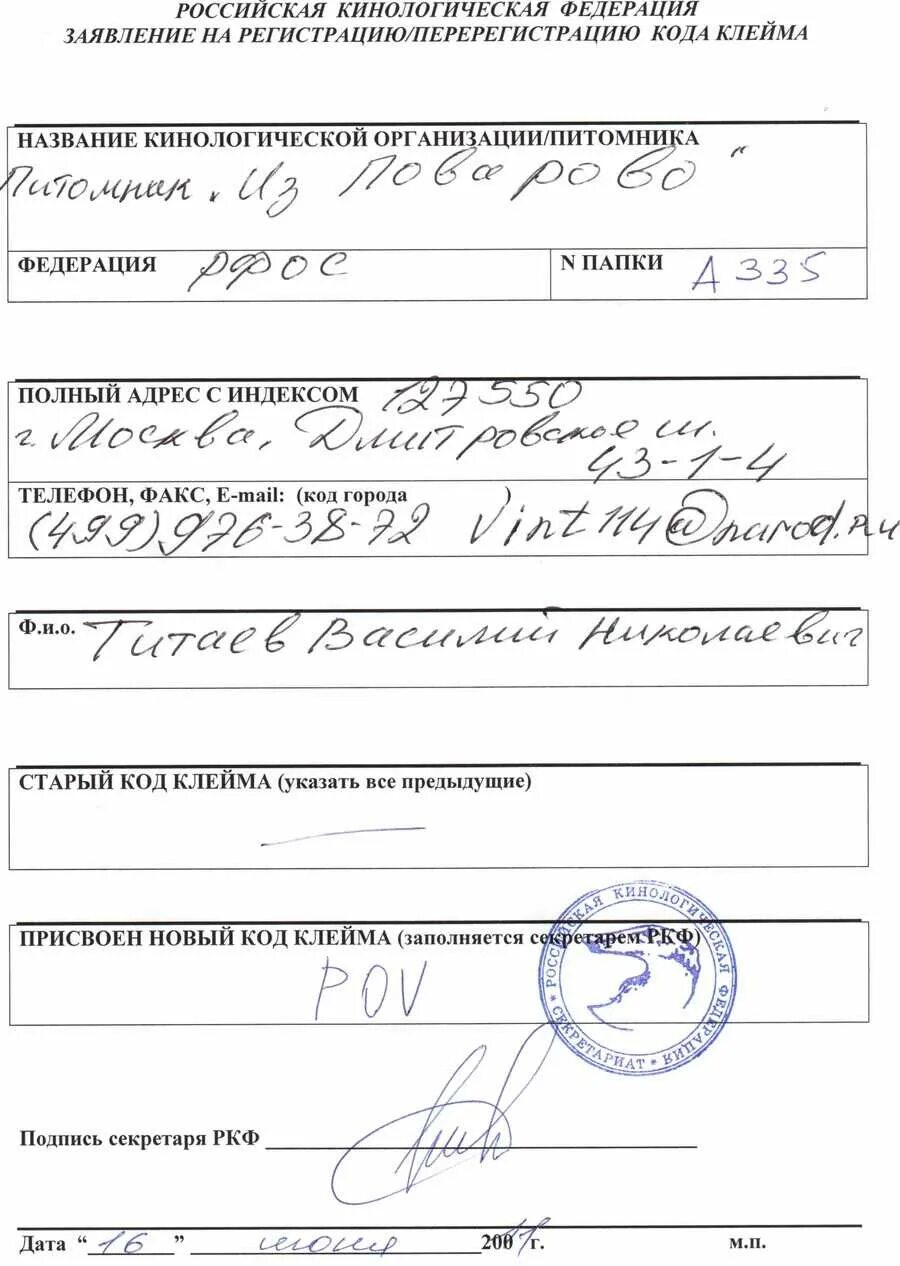 РОССИЙСКАЯ КИНОЛОГИЧЕСКАЯ ФЕДЕРАЦИЯ
ЗАЯВЛЕНИЕ НА РЕГИСТРАЦИЮ/ПЕРЕРЕГИСТРАЦИЮ КОДА КЛЕЙМА
НАЗВАНИЕ КИНОЛОГИЧЕСКОЙ ОРГАНИЗАЦИИ/ПИТОМНИКА
Питомник „Из Поварово"
ФЕДЕРАЦИЯ РФОС N ПАПКИ Д 335
ПОЛНЫЙ АДРЕС С ИНДЕКСОМ 127550
г. Москва, Дмитровское ш.
43-1-4
ТЕЛЕФОН, ФАКС, E-mail: (код города )
(499) 976-38-72 Vint114@narod.ru
Ф.и.о. Титаев Василий Николаевич
СТАРЫЙ КОД КЛЕЙМА (указать все предыдущие)
—
ПРИСВОЕН НОВЫЙ КОД КЛЕЙМА (заполняется секретарем РКФ)
POV
* РОССИЙСКАЯ КИНОЛОГИЧЕСКАЯ ФЕДЕРАЦИЯ * СЕКРЕТАРИАТ
Подпись секретаря РКФ
Дата “16” июня 200 11 г. м.п.